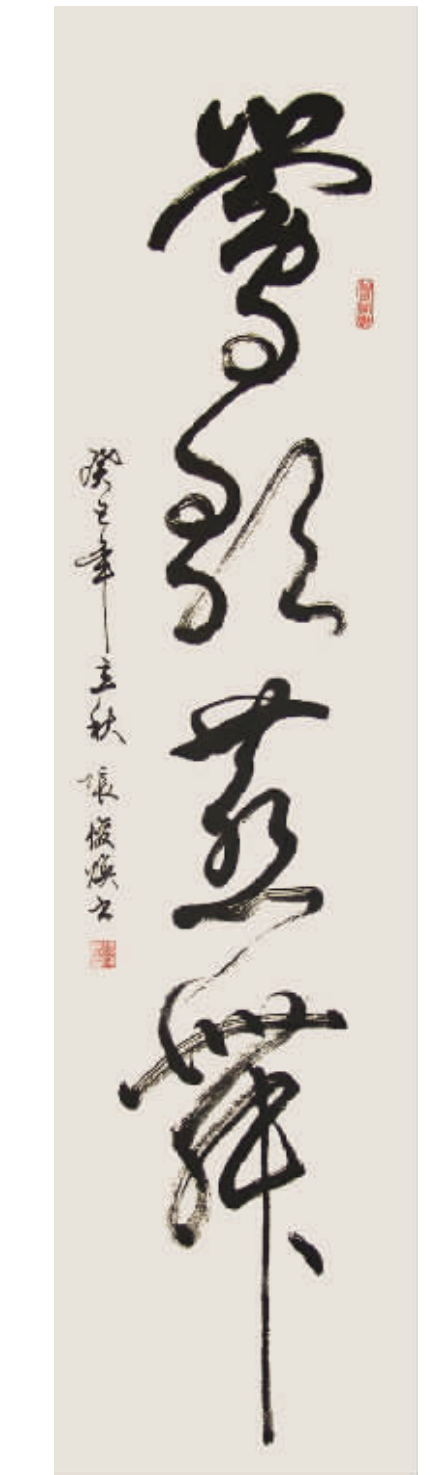 鶯歌燕舞
癸巳年立秋 張俊煥书